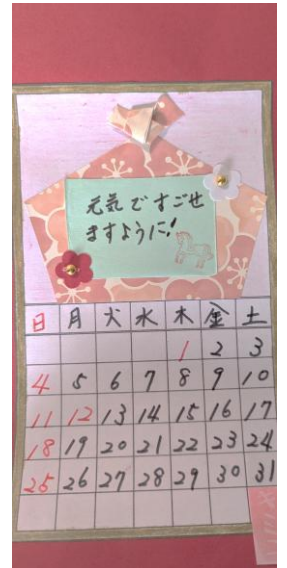 元気ですごせ
ますように!
日 月 火 水 木 金 土
1 2 3
4 5 6 7 8 9 10
11 12 13 14 15 16 17
18 19 20 21 22 23 24
25 26 27 28 29 30 31